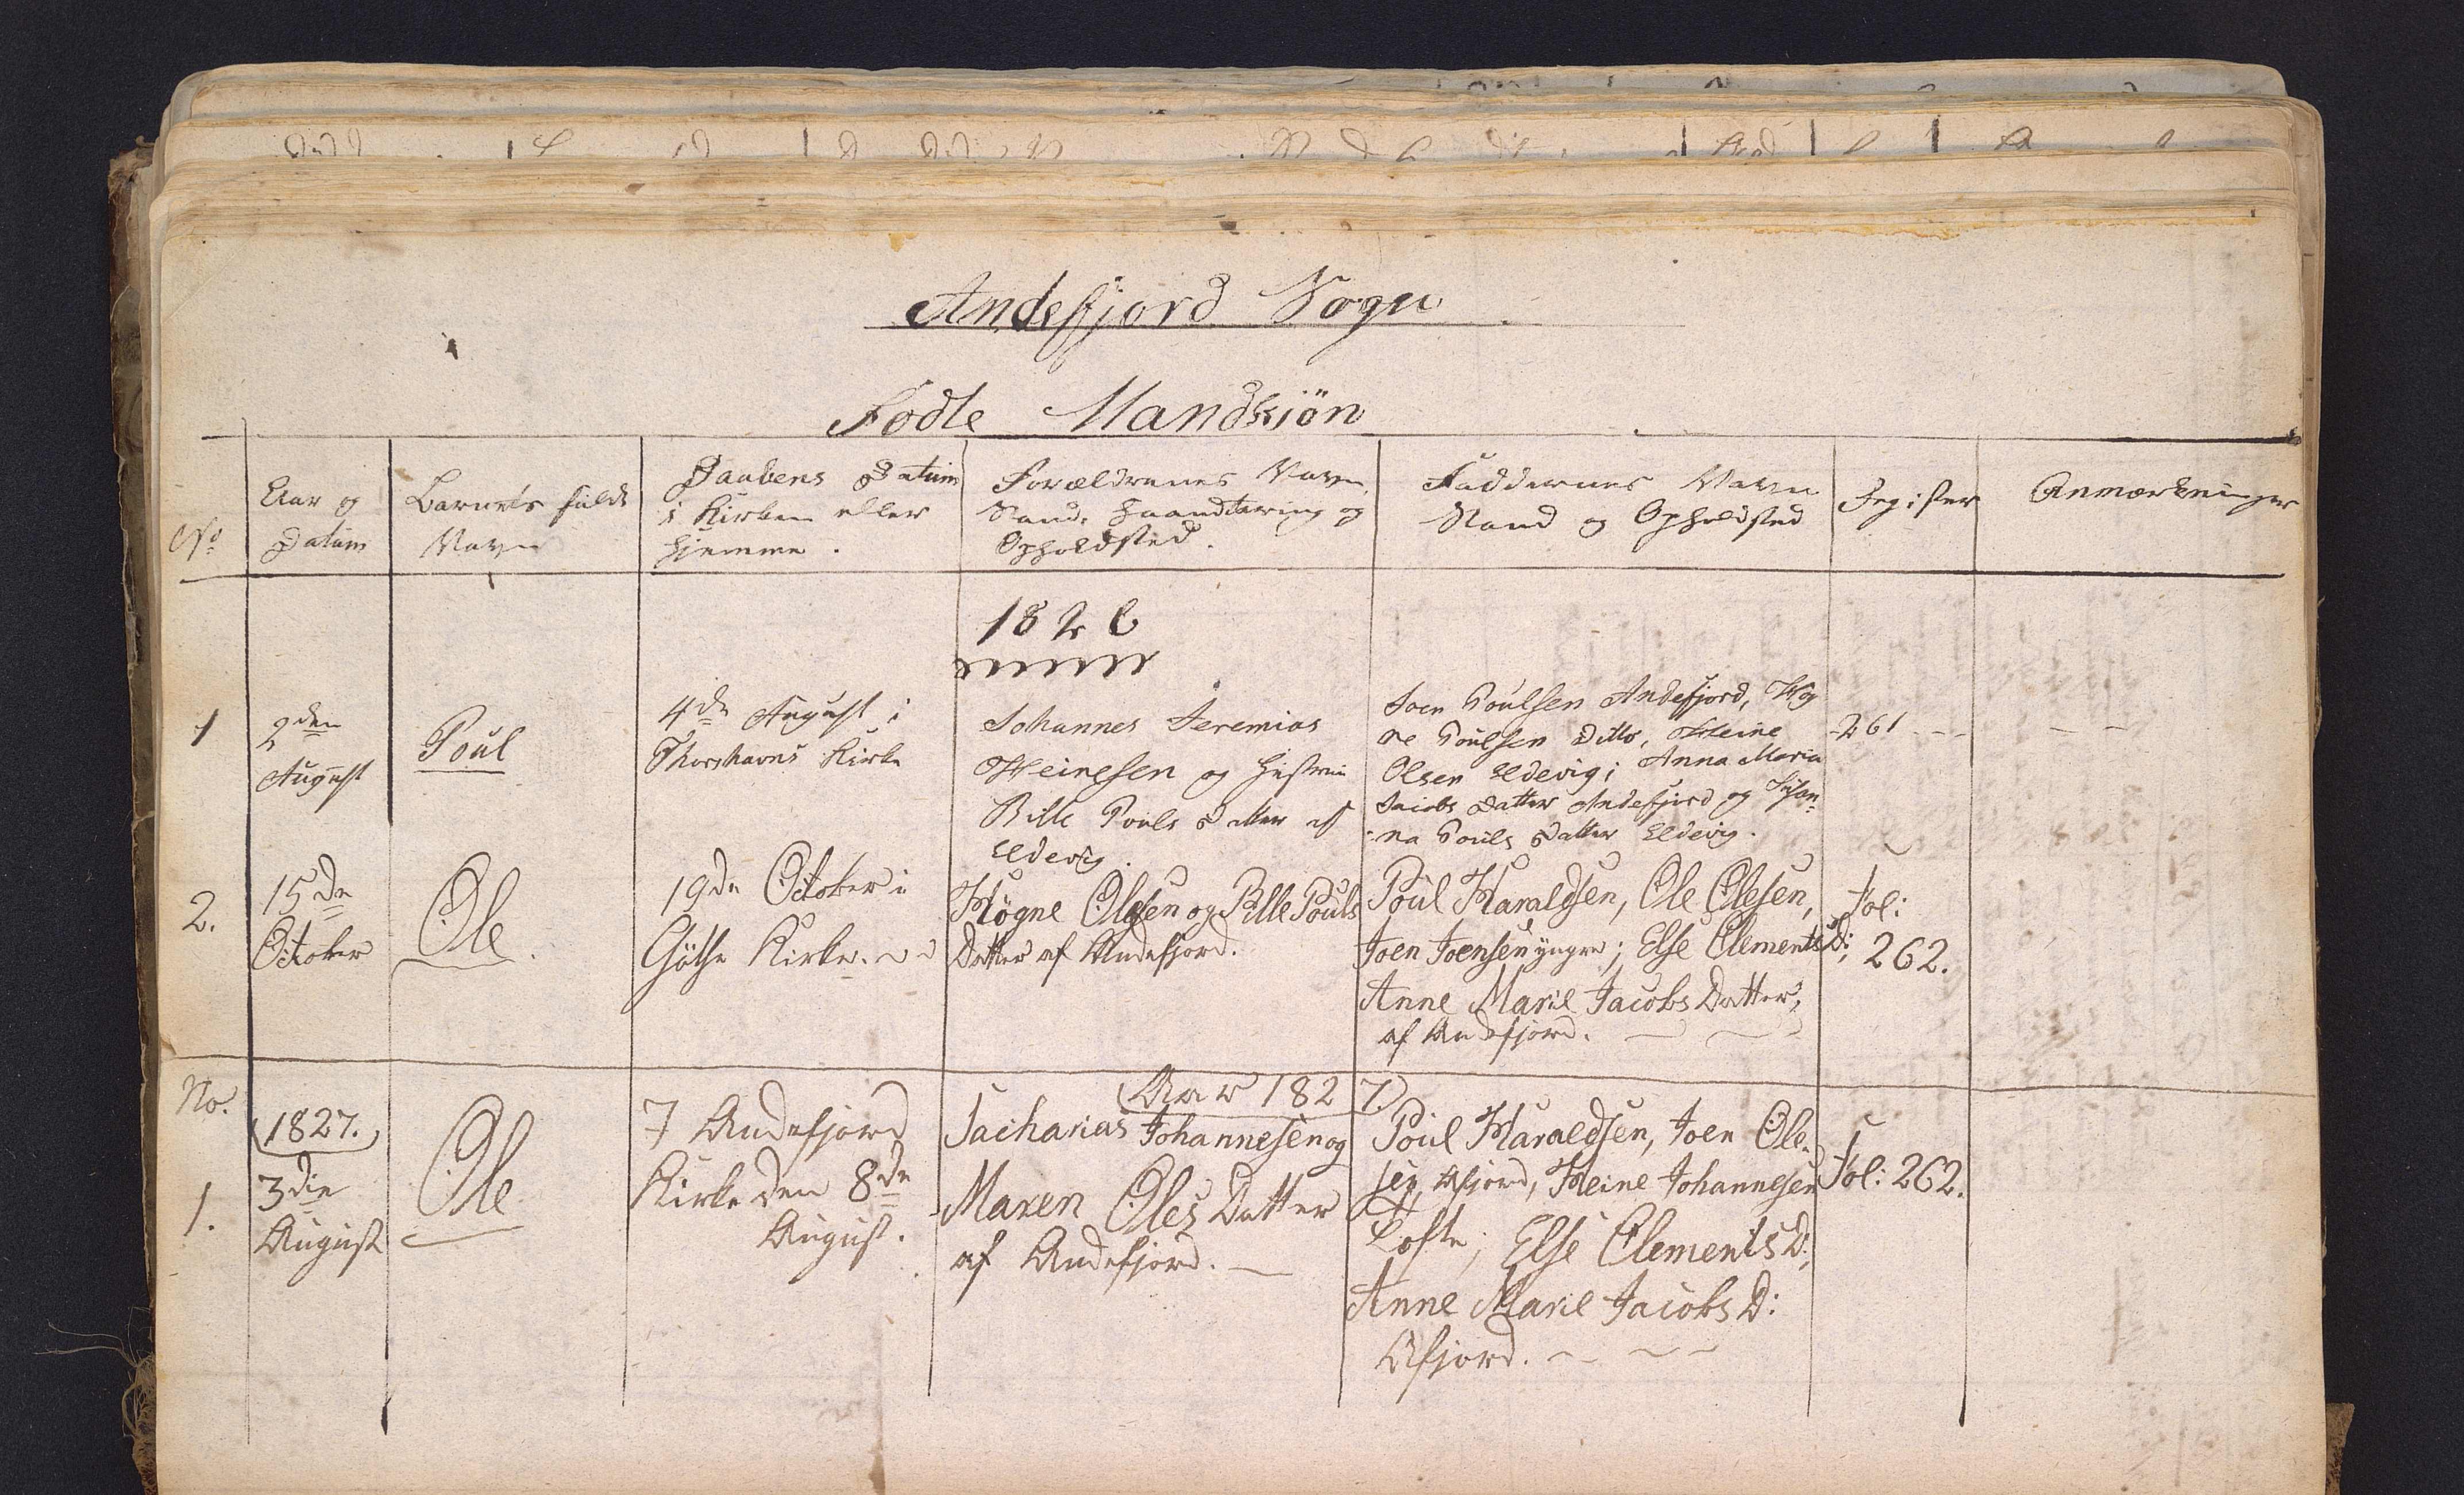 Andefjord Sogn
Fødte Mandkiön
No
Aar og
Datum
Barnets fulde
Navn
Daabens Datum
i Kirken eller
hjemme.
Forældrenes Navn,
Stand, Haandtering og
Opholdsted.
Faddernes Navn
Stand og Opholdsted
Anmærkninger
1826
1
2den
August
Poul
4de August i
Thorshavns Kirke
Johannes Jeremias
Heinesen og Hustrue
Bille Pouls Datter af
Eldevig.
Joen Poulsen Andefjord, Høg
ne Poulsen Ditto, Heine
Olsen Eldevig; Anna Maria
Jacobs Datter Andefjord og Susan-
-na Pouls Datter Eldevig.
261 - -
2.
15de
October
Ole.
19de October i
Gøthe Kirke.
Høgne Olesen og Bille Pouls
Datter af Andefjord.
Poul Haraldsen, Ole Olesen,
Joen Joensen yngre; Else Clements D:;
Anne Marie Jacobs Datter,
af Andefjord.
Fol:
262.
No.
Aar 1827.
1827.
1.
3die
August
Ole
I Andefjord
Kirke den 8de
August.
Zacharias Johannesen og
Maren Oles Datter
af Andefjord.
Poul Haraldsen, Joen Ole-
sen, Afjord, Heine Johannesen
Lofte; Else Clements D:,
Anne Marie Jacobs D:
Afjord.
Fol: 262.